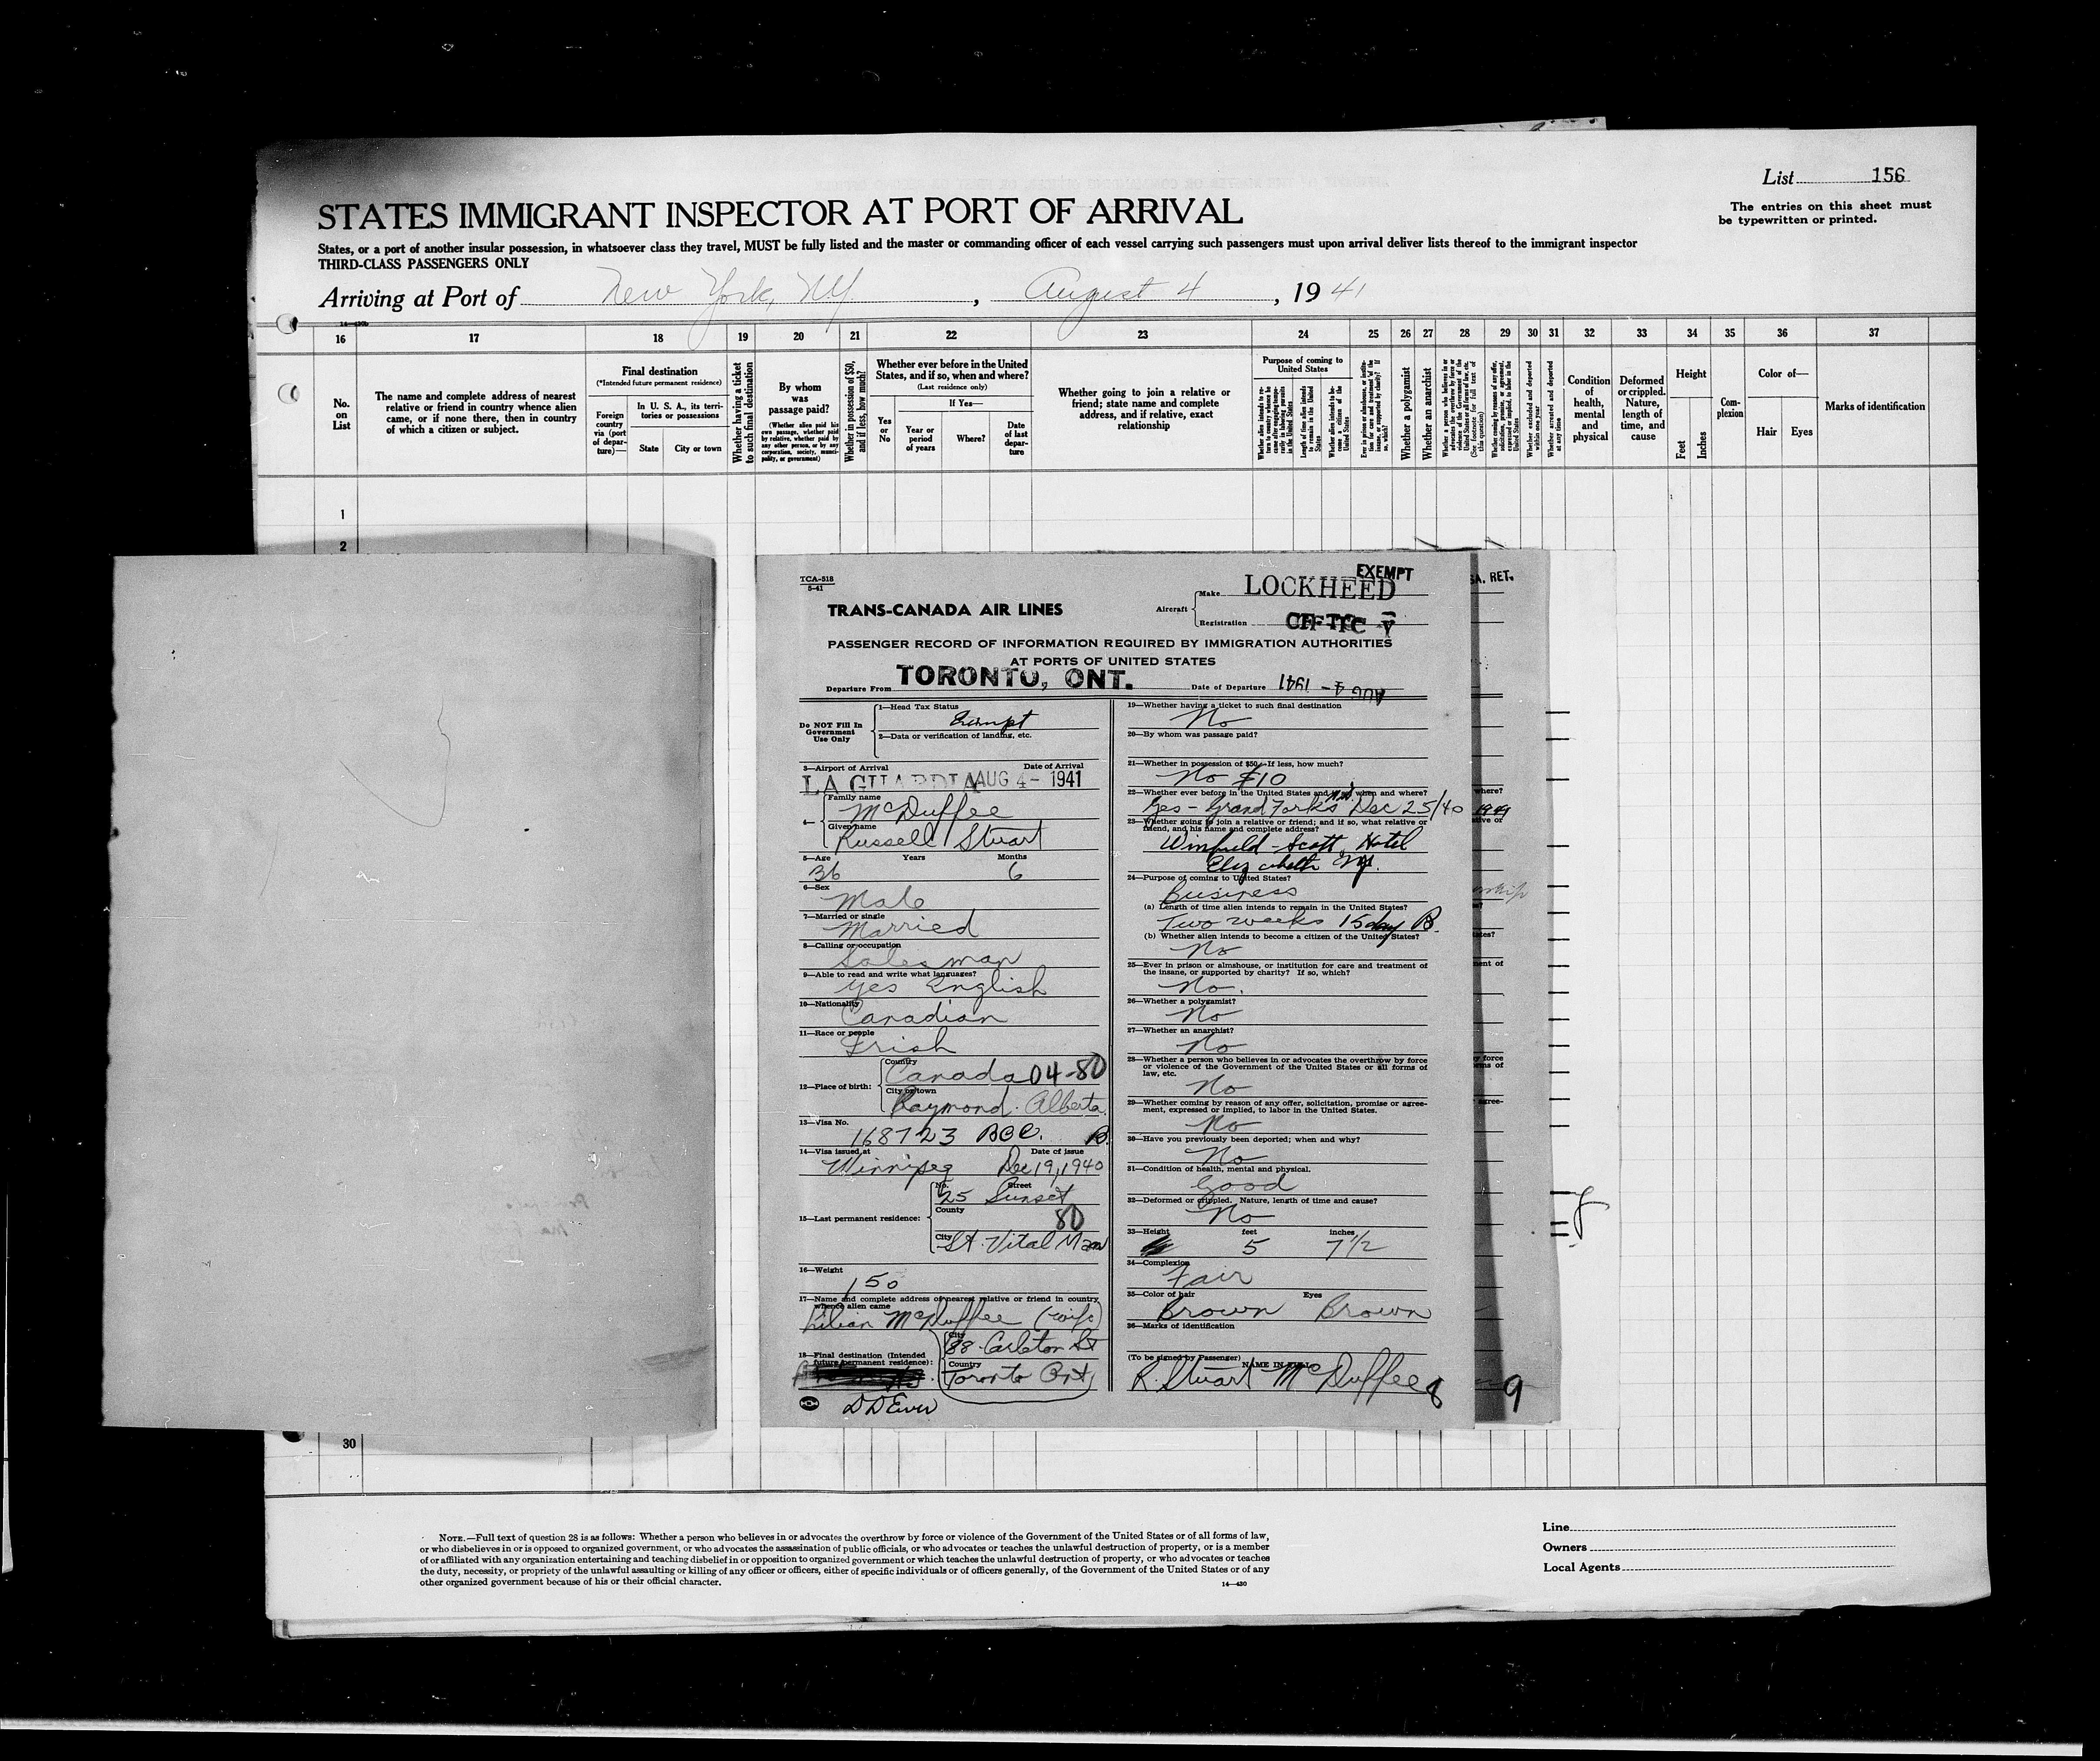 List 156
The entries on this sheet must
be typewritten or printed.
STATES IMMIGRANT INSPECTOR AT PORT OF ARRIVAL
States, or a port of another insular possession, in whatsoever class they travel, MUST be fully listed and the master or commanding officer of each vessel carrying such passengers must upon arrival deliver lists thereof to the immigrant inspector
THIRD-CLASS PASSENGERS ONLY
Arriving at Port of New York, NY, August 4, 1941
16 17 18 19 20 21 22 23 24 25 26 27 28 29 30 31 32 33 34 35 36 37
No. on List
The name and complete address of nearest
relative or friend in country whence alien
came, or if none there, then in country
of which a citizen or subject.
Final destination
(*Intended future permanent residence)
Foreign country via (port of departure)—
In U. S. A., its territories or possessions
State
City or town
Whether having a ticket to such final destination
By whom was passage paid?
(Whether alien paid his own passage, whether paid by relative, whether paid by any other person, or by any corporation, society, municipality, or government)
Whether in possession of $50, and if less, how much?
Whether ever before in the United
States, and if so, when and where?
(Last residence only)
Yes or No
If Yes—
Year or period of years
Where?
Date of last departure
Whether going to join a relative or
friend; state name and complete
address, and if relative, exact
relationship
Purpose of coming to
United States
Whether a polygamist
Whether an anarchist
Condition of health, mental and physical
Deformed or crippled. Nature, length of time, and cause
Height
Feet
Inches
Complexion
Color of—
Hair
Eyes
Marks of identification
1
2
TCA-518
5-41
TRANS-CANADA AIR LINES
EXEMPT
Aircraft
Make LOCKHEED
Registration
PASSENGER RECORD OF INFORMATION REQUIRED BY IMMIGRATION AUTHORITIES
AT PORTS OF UNITED STATES
Departure From TORONTO, ONT. Date of Departure AUG 4 - 1941
Do NOT Fill In
Government
Use Only
1—Head Tax Status
Exempt
2—Data or verification of landing, etc.
3—Airport of Arrival Date of Arrival
LA GUARDIA AUG 4 - 1941
4— Family name
McDuffee
Given name
Russell Stuart
5—Age Years Months
36 6
6—Sex
Male
7—Married or single
Married
8—Calling or occupation
Salesman
9—Able to read and write what languages?
Yes English
10—Nationality
Canadian
11—Race or people
Irish
12—Place of birth:
Country
Canada 04-80
City or town
Raymond. Alberta
13—Visa No.
168723 BCC. B.
14—Visa issued at Date of issue
Winnipeg Dec 19, 1940
15—Last permanent residence:
No. Street
25 Sunset
County
80
City
St. Vital Man
16—Weight
150
17—Name and complete address of nearest relative or friend in country
whence alien came
Lilian McDuffee (wife)
18—Final destination (Intended
future permanent residence):
City
88 Carleton St
Country
Toronto Ont
19—Whether having a ticket to such final destination
No
20—By whom was passage paid?
21—Whether in possession of $50. If less, how much?
No $10
22—Whether ever before in the United States and if so, when and where?
Yes - Grand Forks N.D. Dec 25/40
23—Whether going to join a relative or friend; and if so, what relative or
friend, and his name and complete address?
Winfield-Scott Hotel
Elizabeth NJ.
24—Purpose of coming to United States?
Business
(a) Length of time alien intends to remain in the United States?
Two weeks 15 day B.
(b) Whether alien intends to become a citizen of the United States?
No
25—Ever in prison or almshouse, or institution for care and treatment of
the insane, or supported by charity? If so, which?
No.
26—Whether a polygamist?
No
27—Whether an anarchist?
No
28—Whether a person who believes in or advocates the overthrow by force
or violence of the Government of the United States or all forms of
law, etc.
No
29—Whether coming by reason of any offer, solicitation, promise or agree-
ment, expressed or implied, to labor in the United States.
No
30—Have you previously been deported; when and why?
No
31—Condition of health, mental and physical.
Good
32—Deformed or crippled. Nature, length of time and cause?
No
33—Height feet inches
5 7 1/2
34—Complexion
Fair
35—Color of hair Eyes
Brown Brown
36—Marks of identification
(To be signed by Passenger) NAME IN FULL
R. Stuart McDuffee
8
9
30
NOTE.—Full text of question 28 is as follows: Whether a person who believes in or advocates the overthrow by force or violence of the Government of the United States or of all forms of law,
or who disbelieves in or is opposed to organized government, or who advocates the assassination of public officials, or who advocates or teaches the unlawful destruction of property, or is a member
of or affiliated with any organization entertaining and teaching disbelief in or opposition to organized government or which teaches the unlawful destruction of property, or who advocates or teaches
the duty, necessity, or propriety of the unlawful assaulting or killing of any officer or officers, either of specific individuals or of officers generally, of the Government of the United States or of any
other organized government because of his or their official character.
14—430
Line
Owners
Local Agents